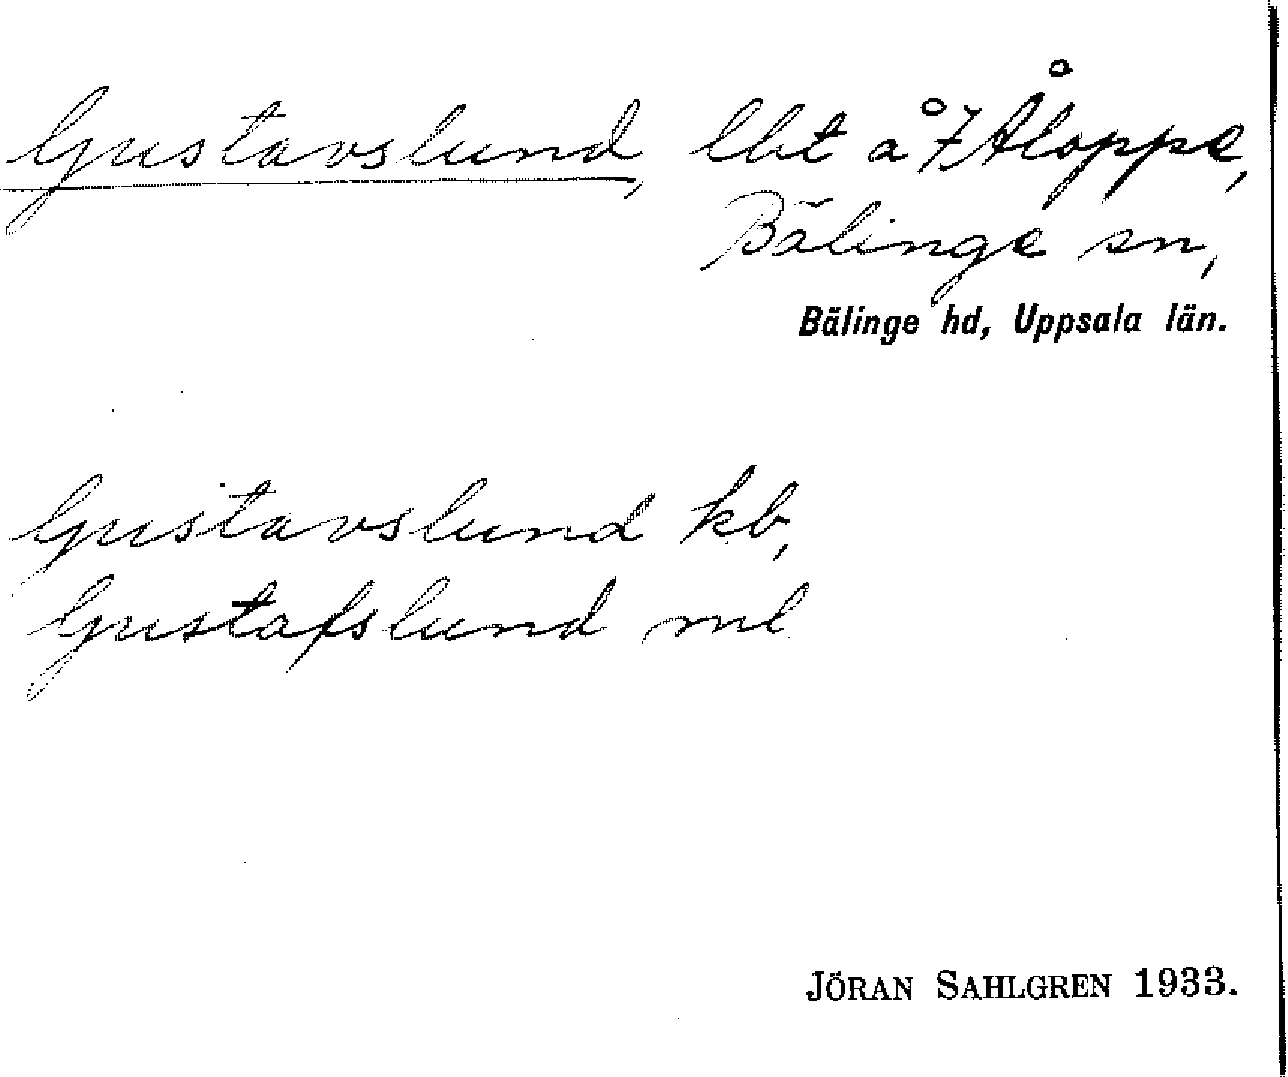 Gustavslund, lbt å 7 Åloppe,
Bälinge sn,
Bälinge hd, Uppsala län.
Gustavslund kb,
Gustafslund ml
JÖRAN SAHLGREN 1933.